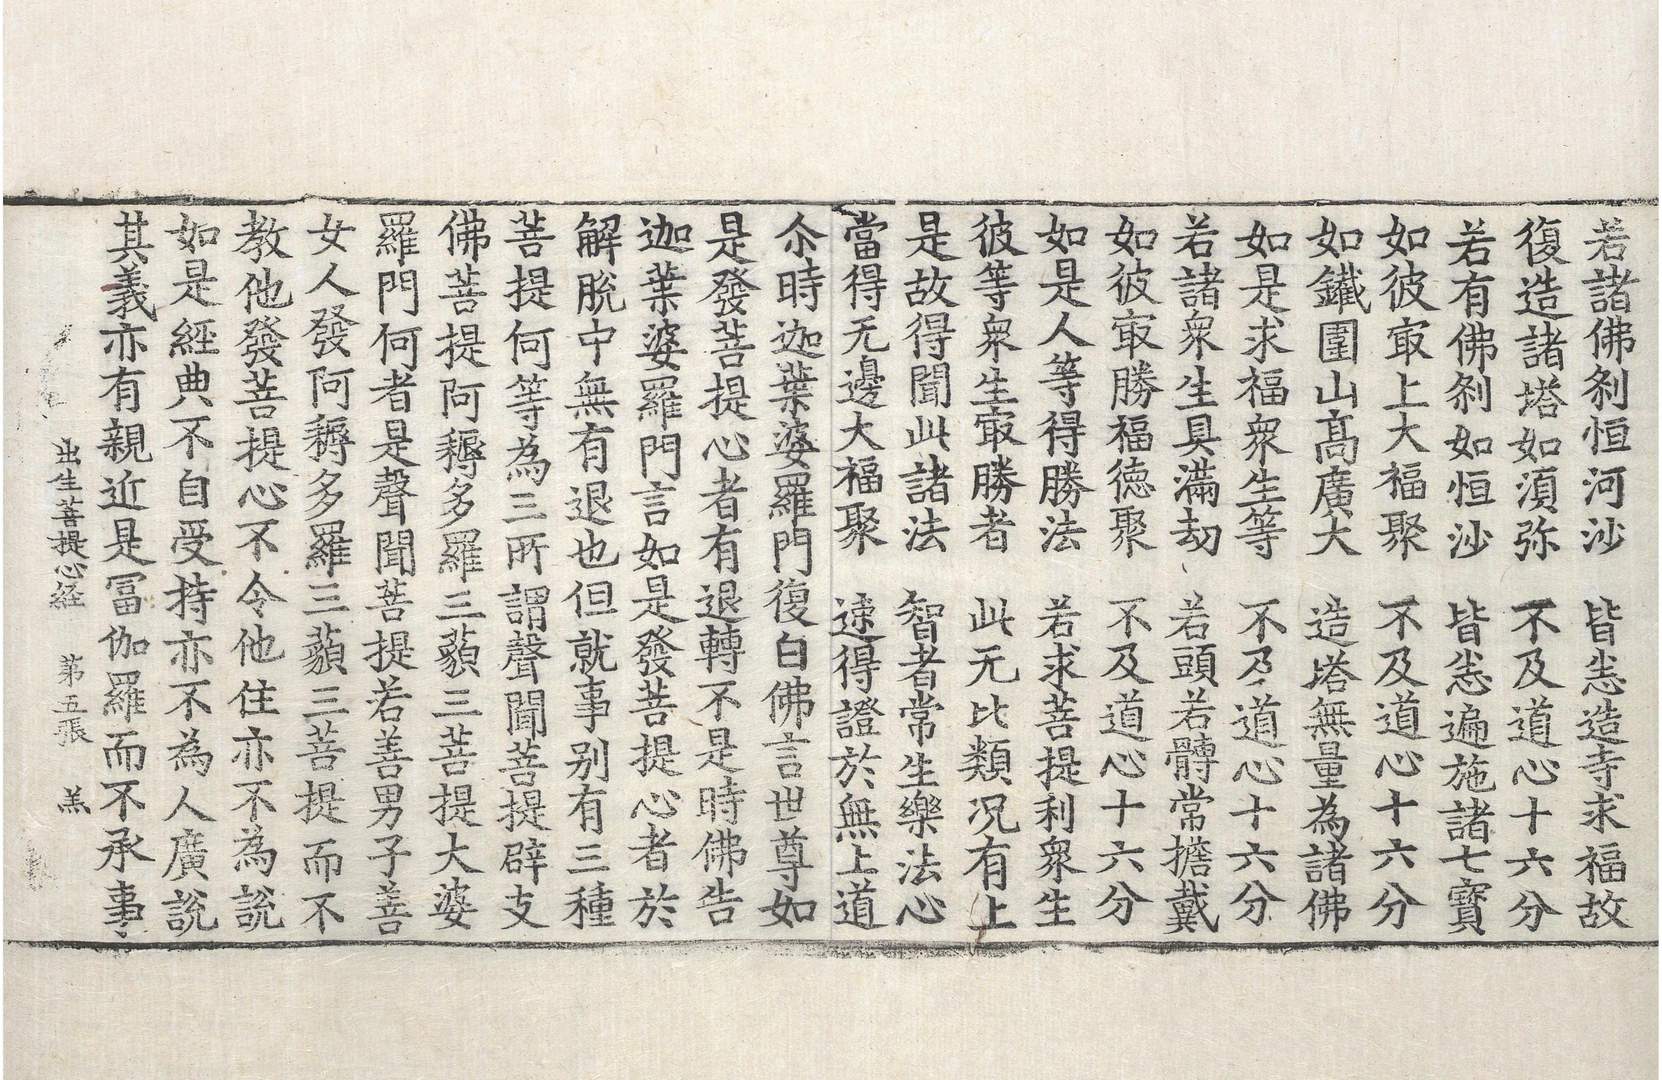 若諸佛刹恒河沙　皆悉造寺求福故
復造諸塔如湏弥　不及道心十六分
若有佛刹如恒沙　皆悉遍施諸七寳
如彼㝡上大福聚　不及道心十六分
如鐵圍山髙廣大　造塔無量為諸佛
如是求福衆生等　不及道心十六分
若諸衆生具滿劫　若頭若髆常擔戴
如彼㝡勝福德聚　不及道心十六分
如是人等得勝法　若求菩提利衆生
彼等衆生㝡勝者　此无比類况有上
是故得聞此諸法　智者常生樂法心
當得无邊大福聚　速得證於無上道
尒時迦葉婆羅門復白佛言世尊如
是發菩提心者有退轉不是時佛告
迦葉婆羅門言如是發菩提心者於
解脫中無有退也但就事别有三種
菩提何等為三所謂聲聞菩提辟支
佛菩提阿耨多羅三藐三菩提大婆
羅門何者是聲聞菩提若善男子善
女人發阿耨多羅三藐三菩提而不
教他發菩提心不令他住亦不為說
如是經典不自受持亦不為人廣說
其義亦有親近是冨伽羅而不承事
出生菩提心経　第五張　羔